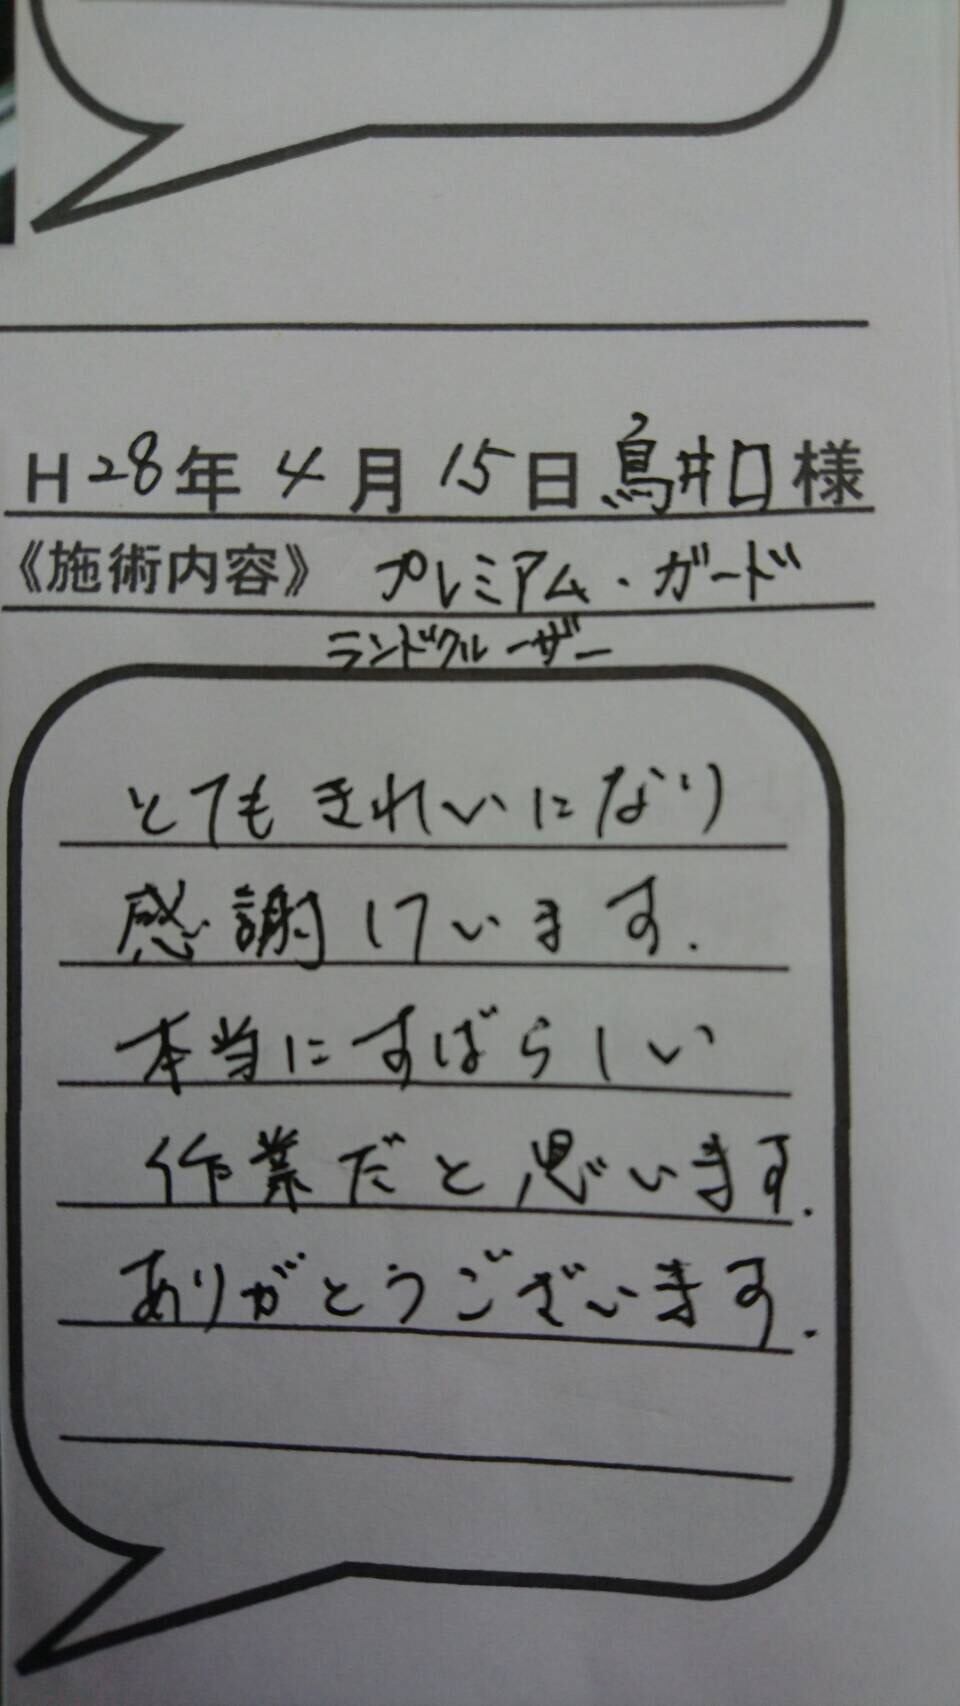 H28年4月15日鳥井口様
《施術内容》 プレミアム・ガード
ランドクルーザー
とてもきれいになり
感謝しています.
本当にすばらしい
作業だと思います.
ありがとうございます.